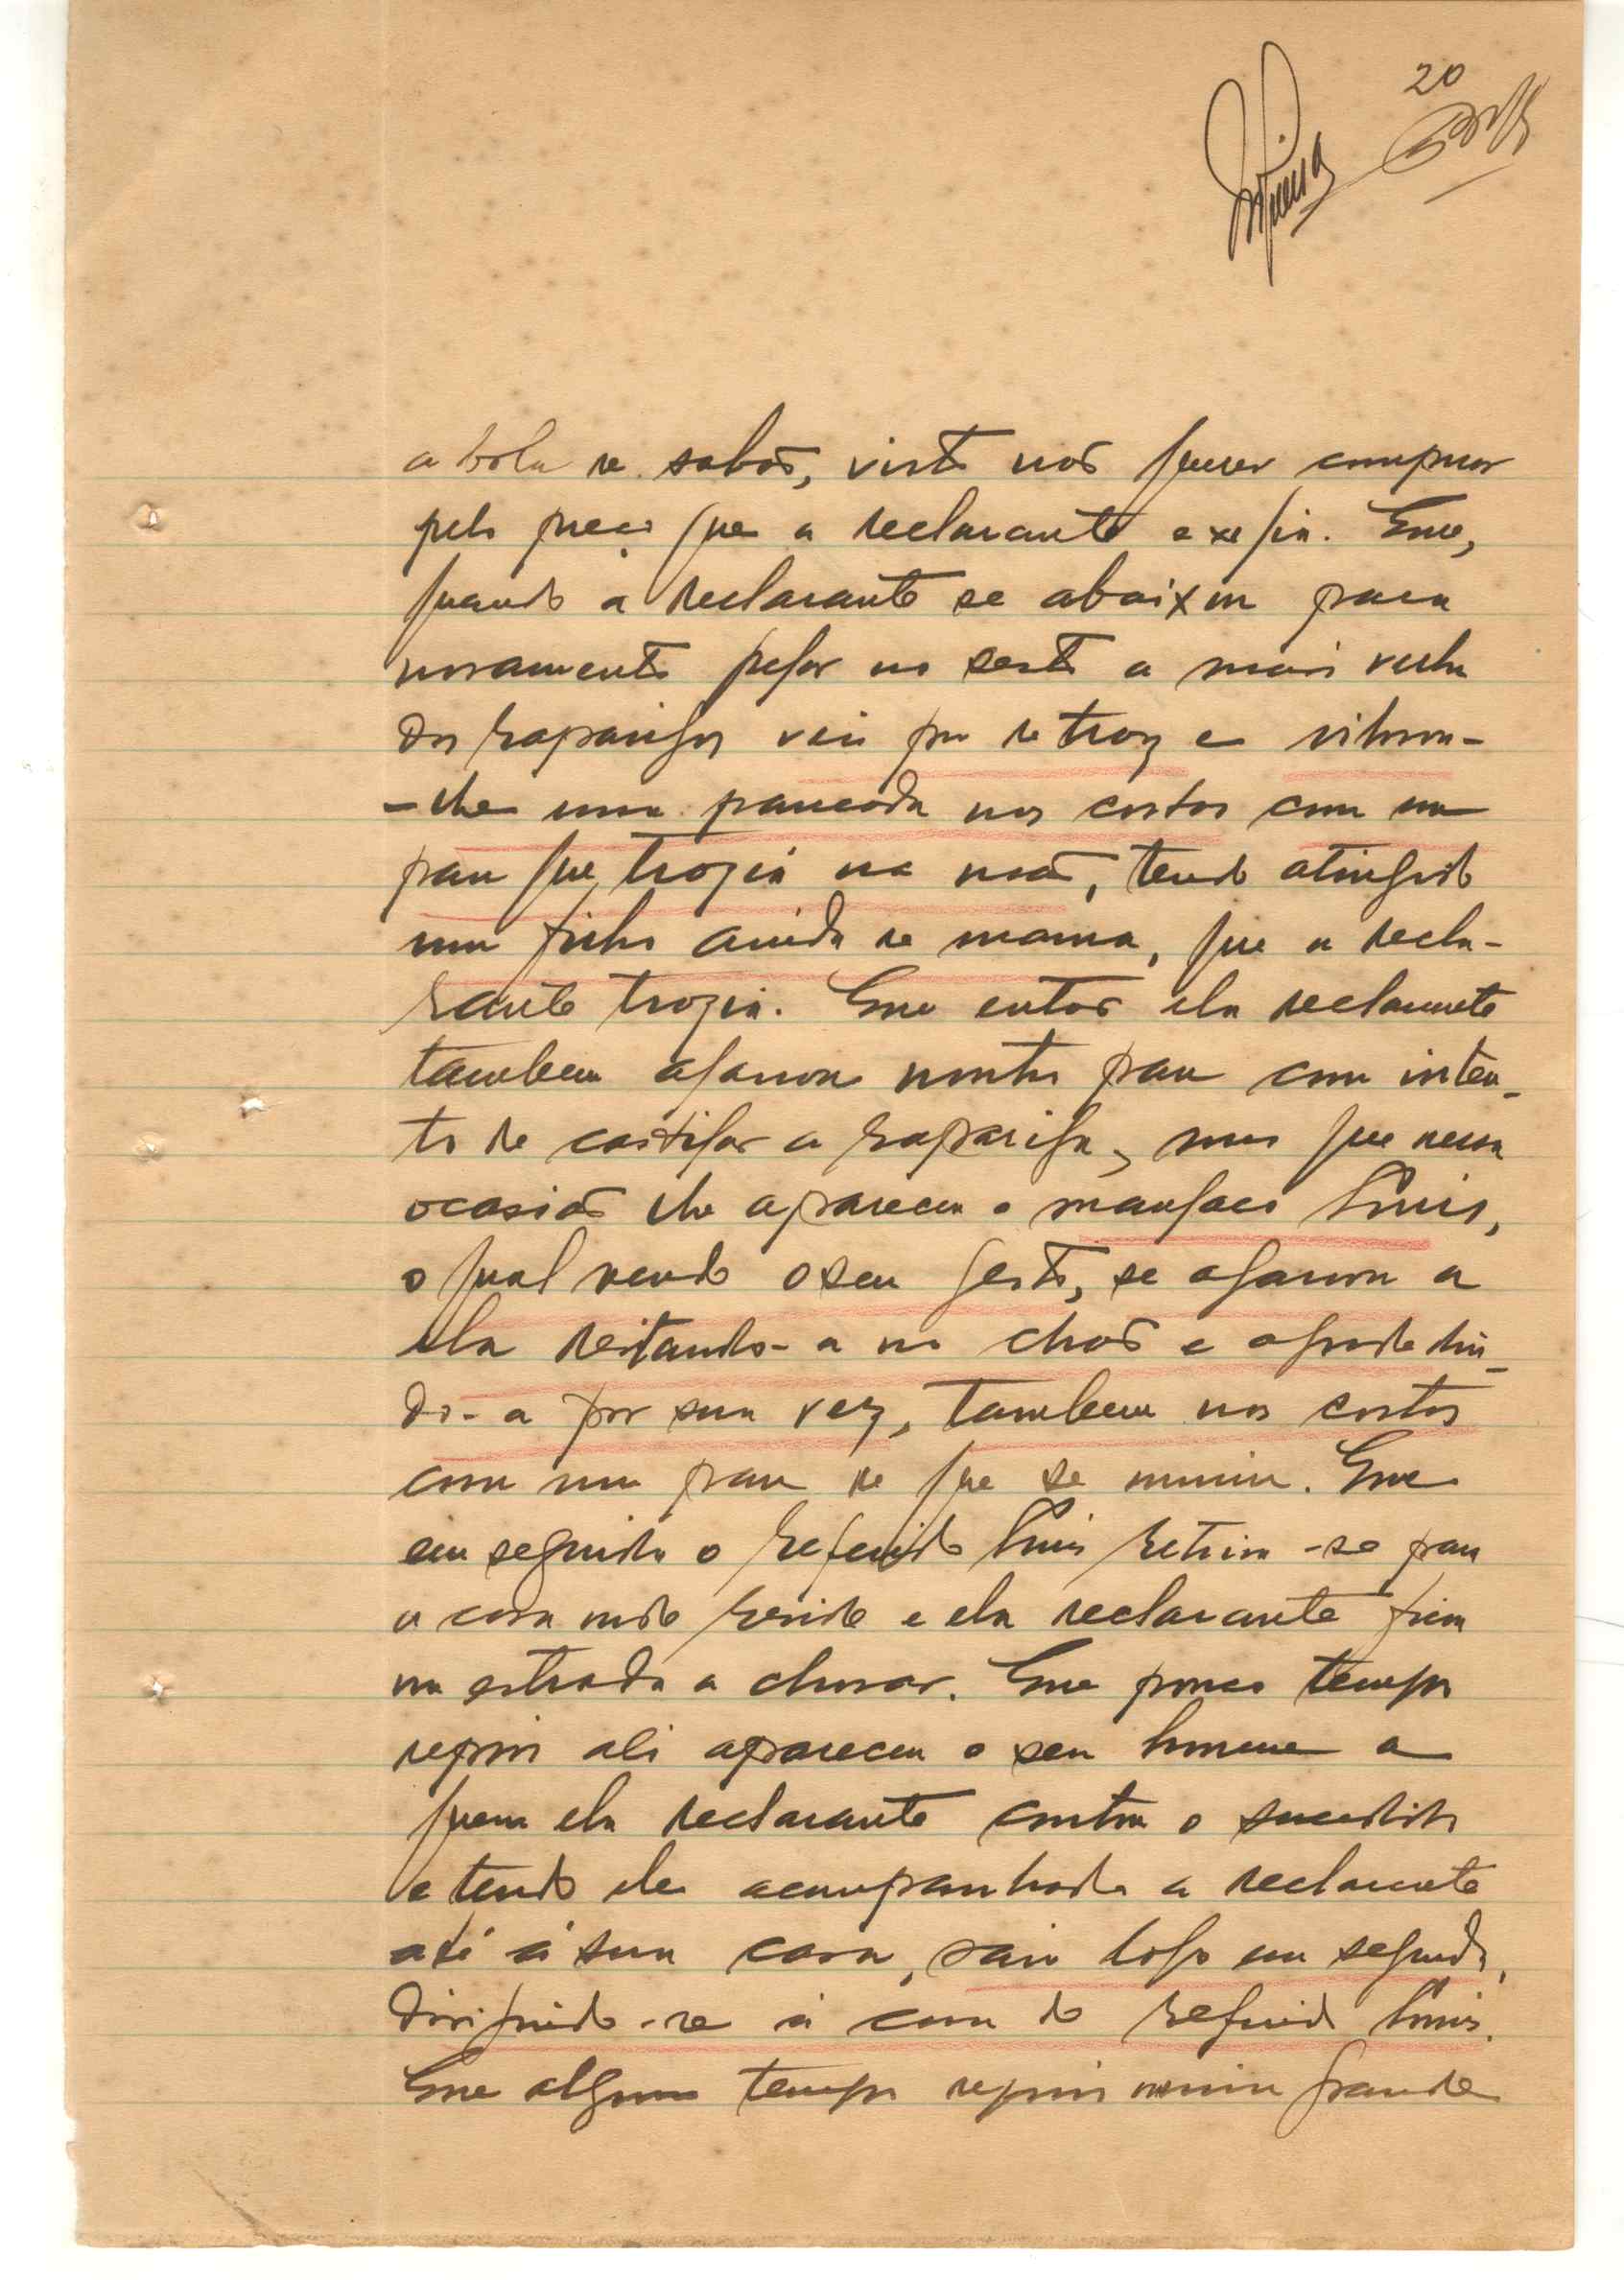 20
a bola de sabão, visto não querer comprar
pelo preço que a declarante exigia. Que,
quando a declarante se abaixou para
novamente pegar no cesto a mais velha
das raparigas veiu por detraz e vibrou-
-lhe uma pancada nas costas com um
pau que trazia na mão, tendo atingido
um filho ainda de mama, que a decla-
rante trazia. Que entao ela declarante
tambem agarrou noutro pau com inten-
to de castigar a rapariga, mas que nessa
ocasião lhe apareceu o mangaço Luis,
o qual vendo o seu gesto, se agarrou a
ela deitando-a no chão e agredin-
do-a por sua vez, tambem nas costas
com um pau de que se muniu. Que
em seguida o referido Luis retirou-se para
a casa onde reside e ela declarante ficou
na estrada a chorar. Que pouco tempo
depois ali apareceu o seu homem a
quem ela declarante contou o sucedido
e tendo ele acompanhado a declarante
até á sua casa, saiu logo em seguida,
dirigindo-se á casa do referido Luis.
Que algum tempo depois ouviu grande